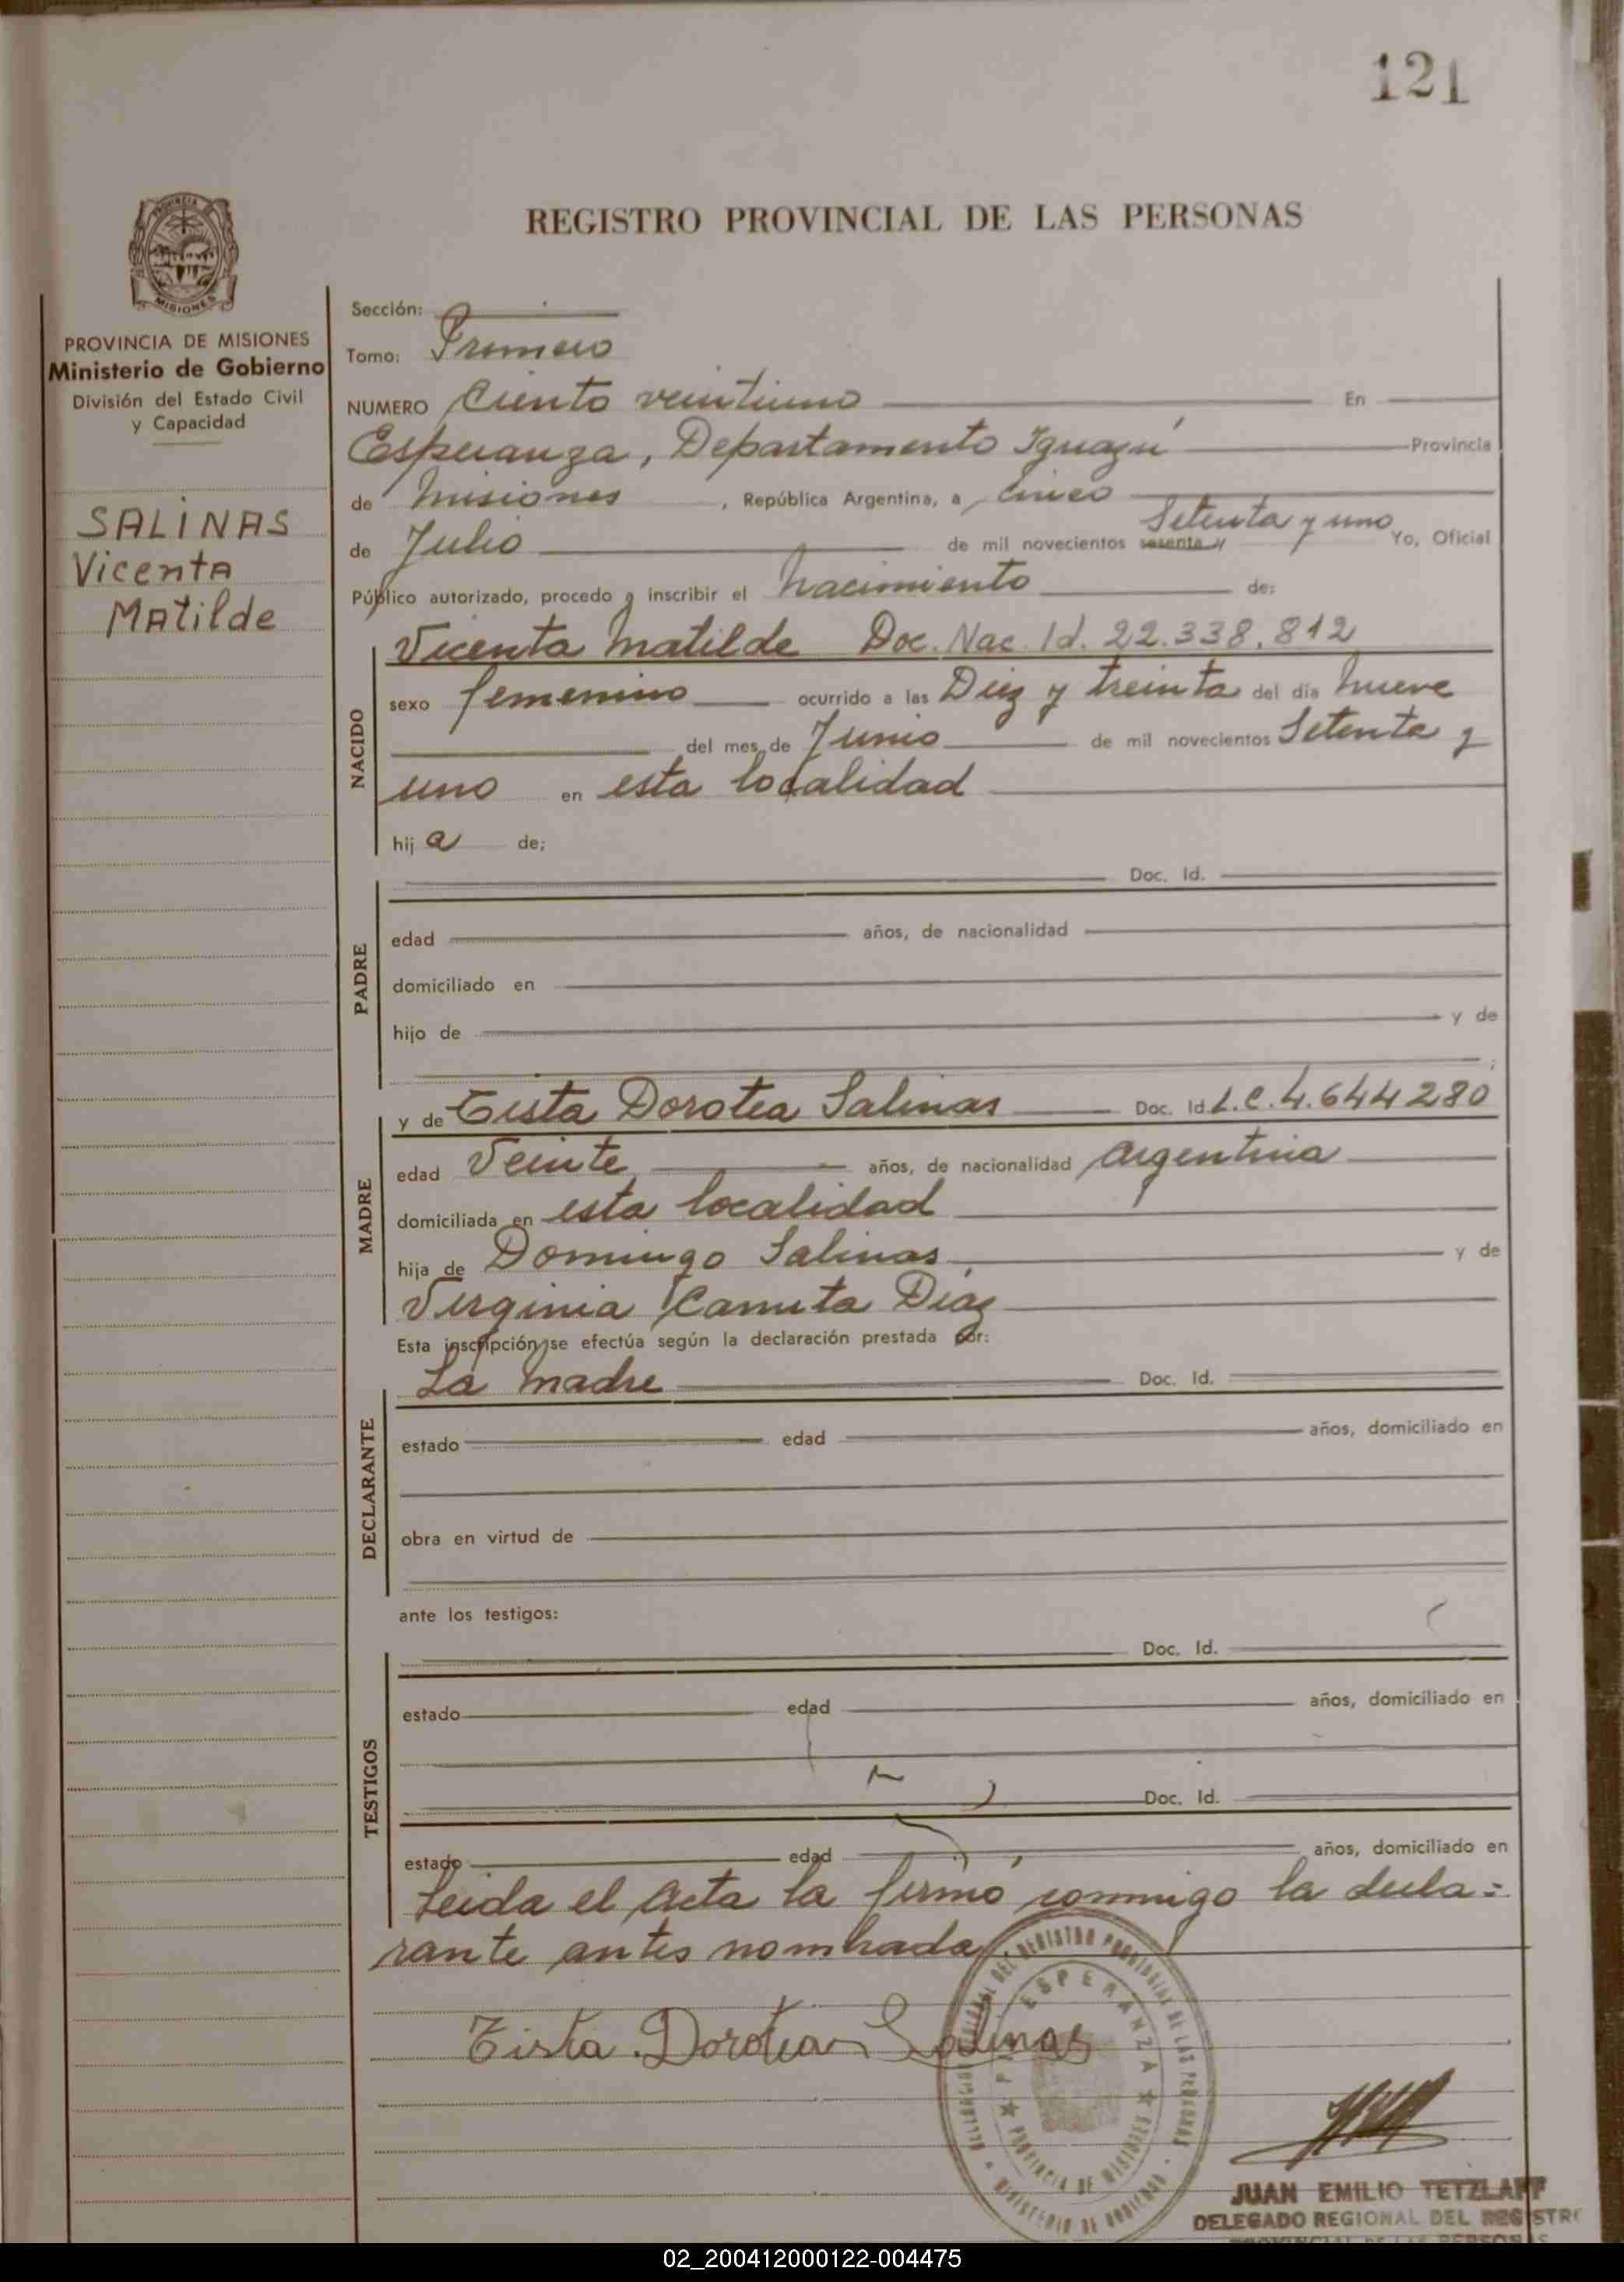 121
REGISTRO PROVINCIAL DE LAS PERSONAS
PROVINCIA DE MISIONES
Ministerio de Gobierno
División del Estado Civil
y Capacidad
SALINAS
Vicenta
Matilde
Sección:
Tomo: Primero
NUMERO Ciento veintiuno En
Esperanza, Departamento Iguazú Provincia
de Misiones , República Argentina, a cinco
de Julio de mil novecientos sesenta y Setenta y uno Yo, Oficial
Público autorizado, procedo a inscribir el nacimiento de:
NACIDO
Vicenta Matilde Doc. Nac. Id. 22.338.812
sexo femenino ocurrido a las Diez y treinta del día nueve
del mes de Junio de mil novecientos Setenta y
uno en esta localidad
hij a de;
PADRE
Doc. Id.
edad años, de nacionalidad
domiciliado en
hijo de y de
MADRE
y de Tista Dorotea Salinas Doc. Id L.C. 4.644280
edad Veinte años, de nacionalidad Argentina
domiciliada en esta localidad
hija de Domingo Salinas y de
Virginia Canuta Diaz
Esta inscripción se efectúa según la declaración prestada por:
DECLARANTE
La madre Doc. Id.
estado edad años, domiciliado en
obra en virtud de
ante los testigos:
TESTIGOS
Doc. Id.
estado edad años, domiciliado en
Doc. Id.
estado edad años, domiciliado en
Leida el Acta la firmó conmigo la decla=
rante antes nombrada.
Tista Dorotea Salinas
ESPERANZA
PROVINCIA DE MISIONES
MINISTERIO DE GOBIERNO
JUAN EMILIO TETZLAFF
DELEGADO REGIONAL DEL REGISTRO
PROVINCIAL DE LAS PERSONAS
02_200412000122-004475